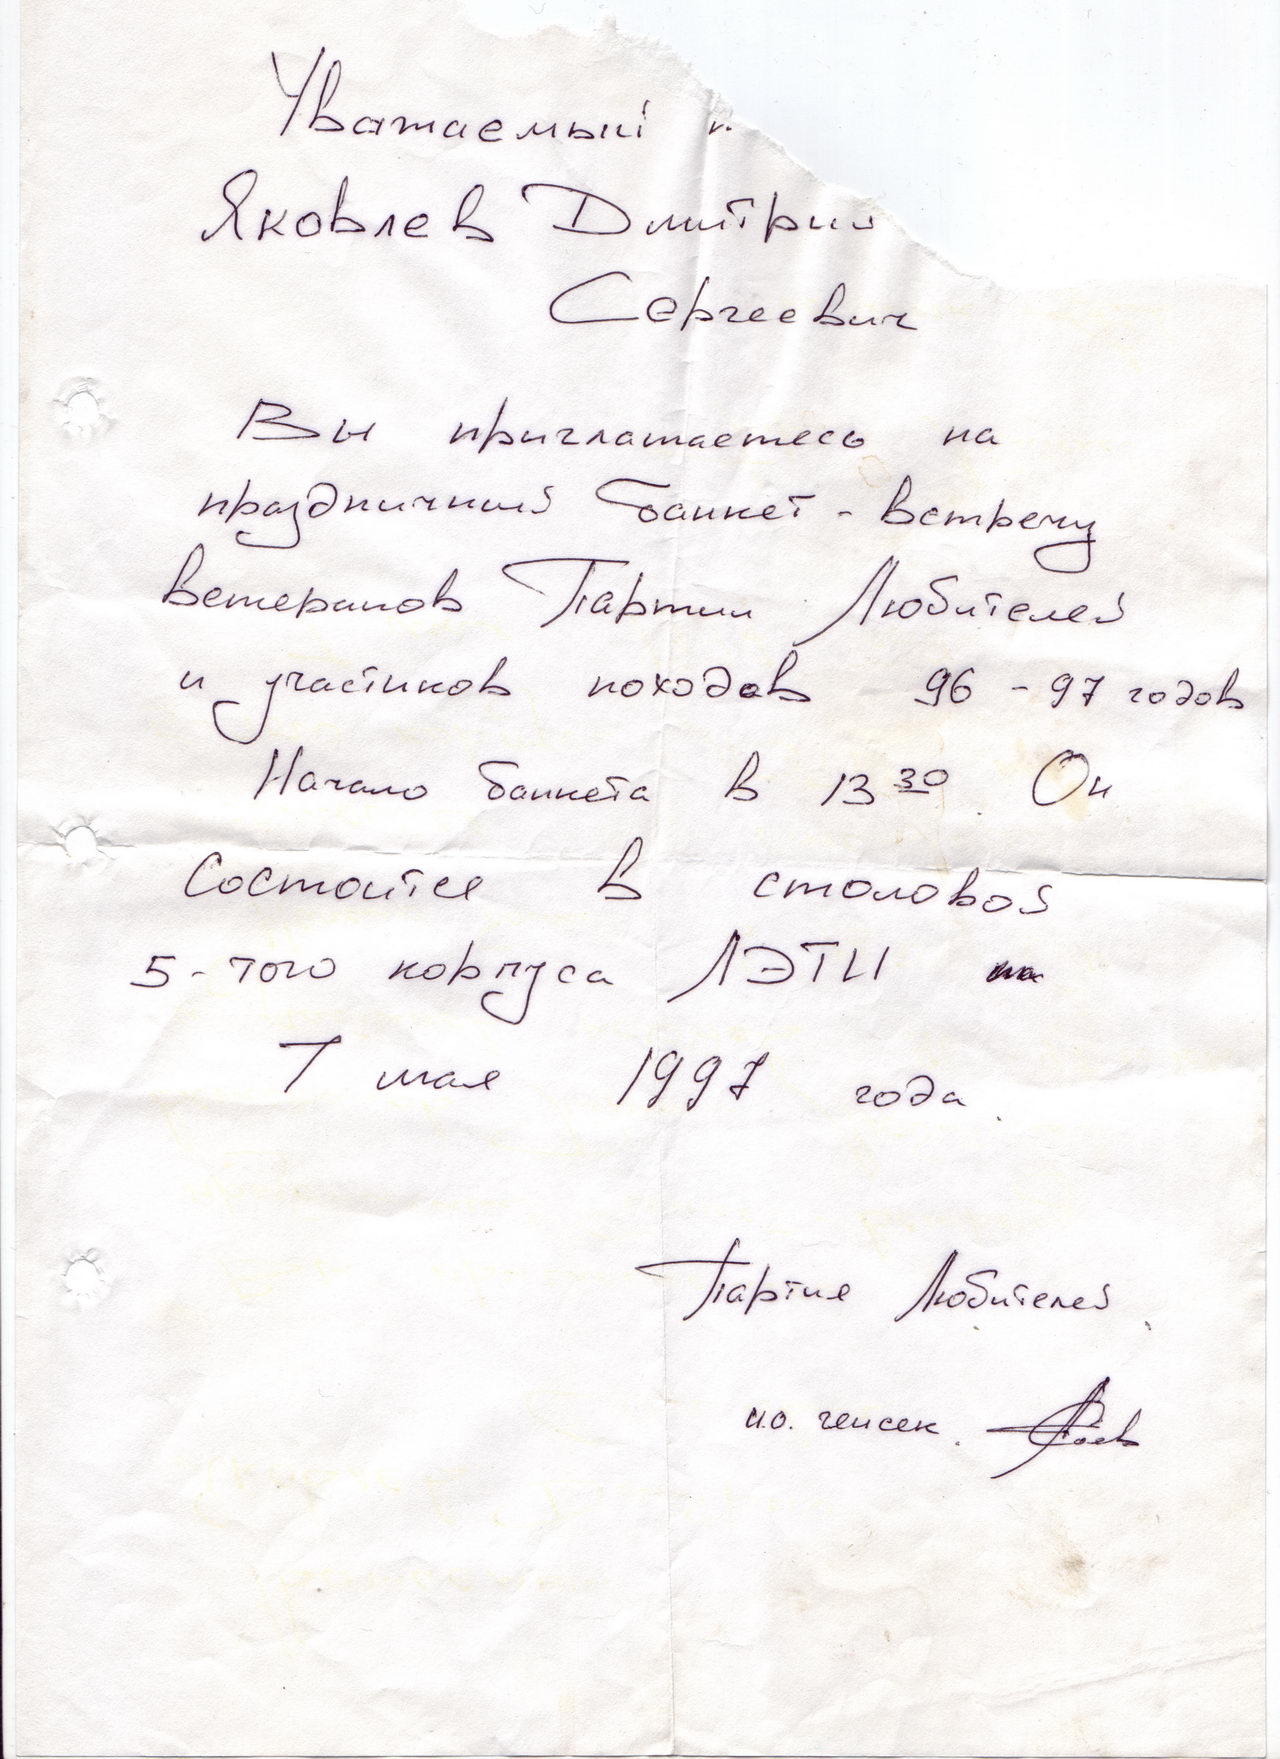 Уважаемый
Яковлев Дмитрий
Сергеевич
Вы приглашаетесь на
праздничный банкет - встречу
ветеранов Партии Любителей
и участников походов 96 - 97 годов
Начало банкета в 13 30 Он
состоится в столовой
5 - того корпуса ЛЭТИ
7 мая 1997 года.
Партия Любителей
и.о. генсек.